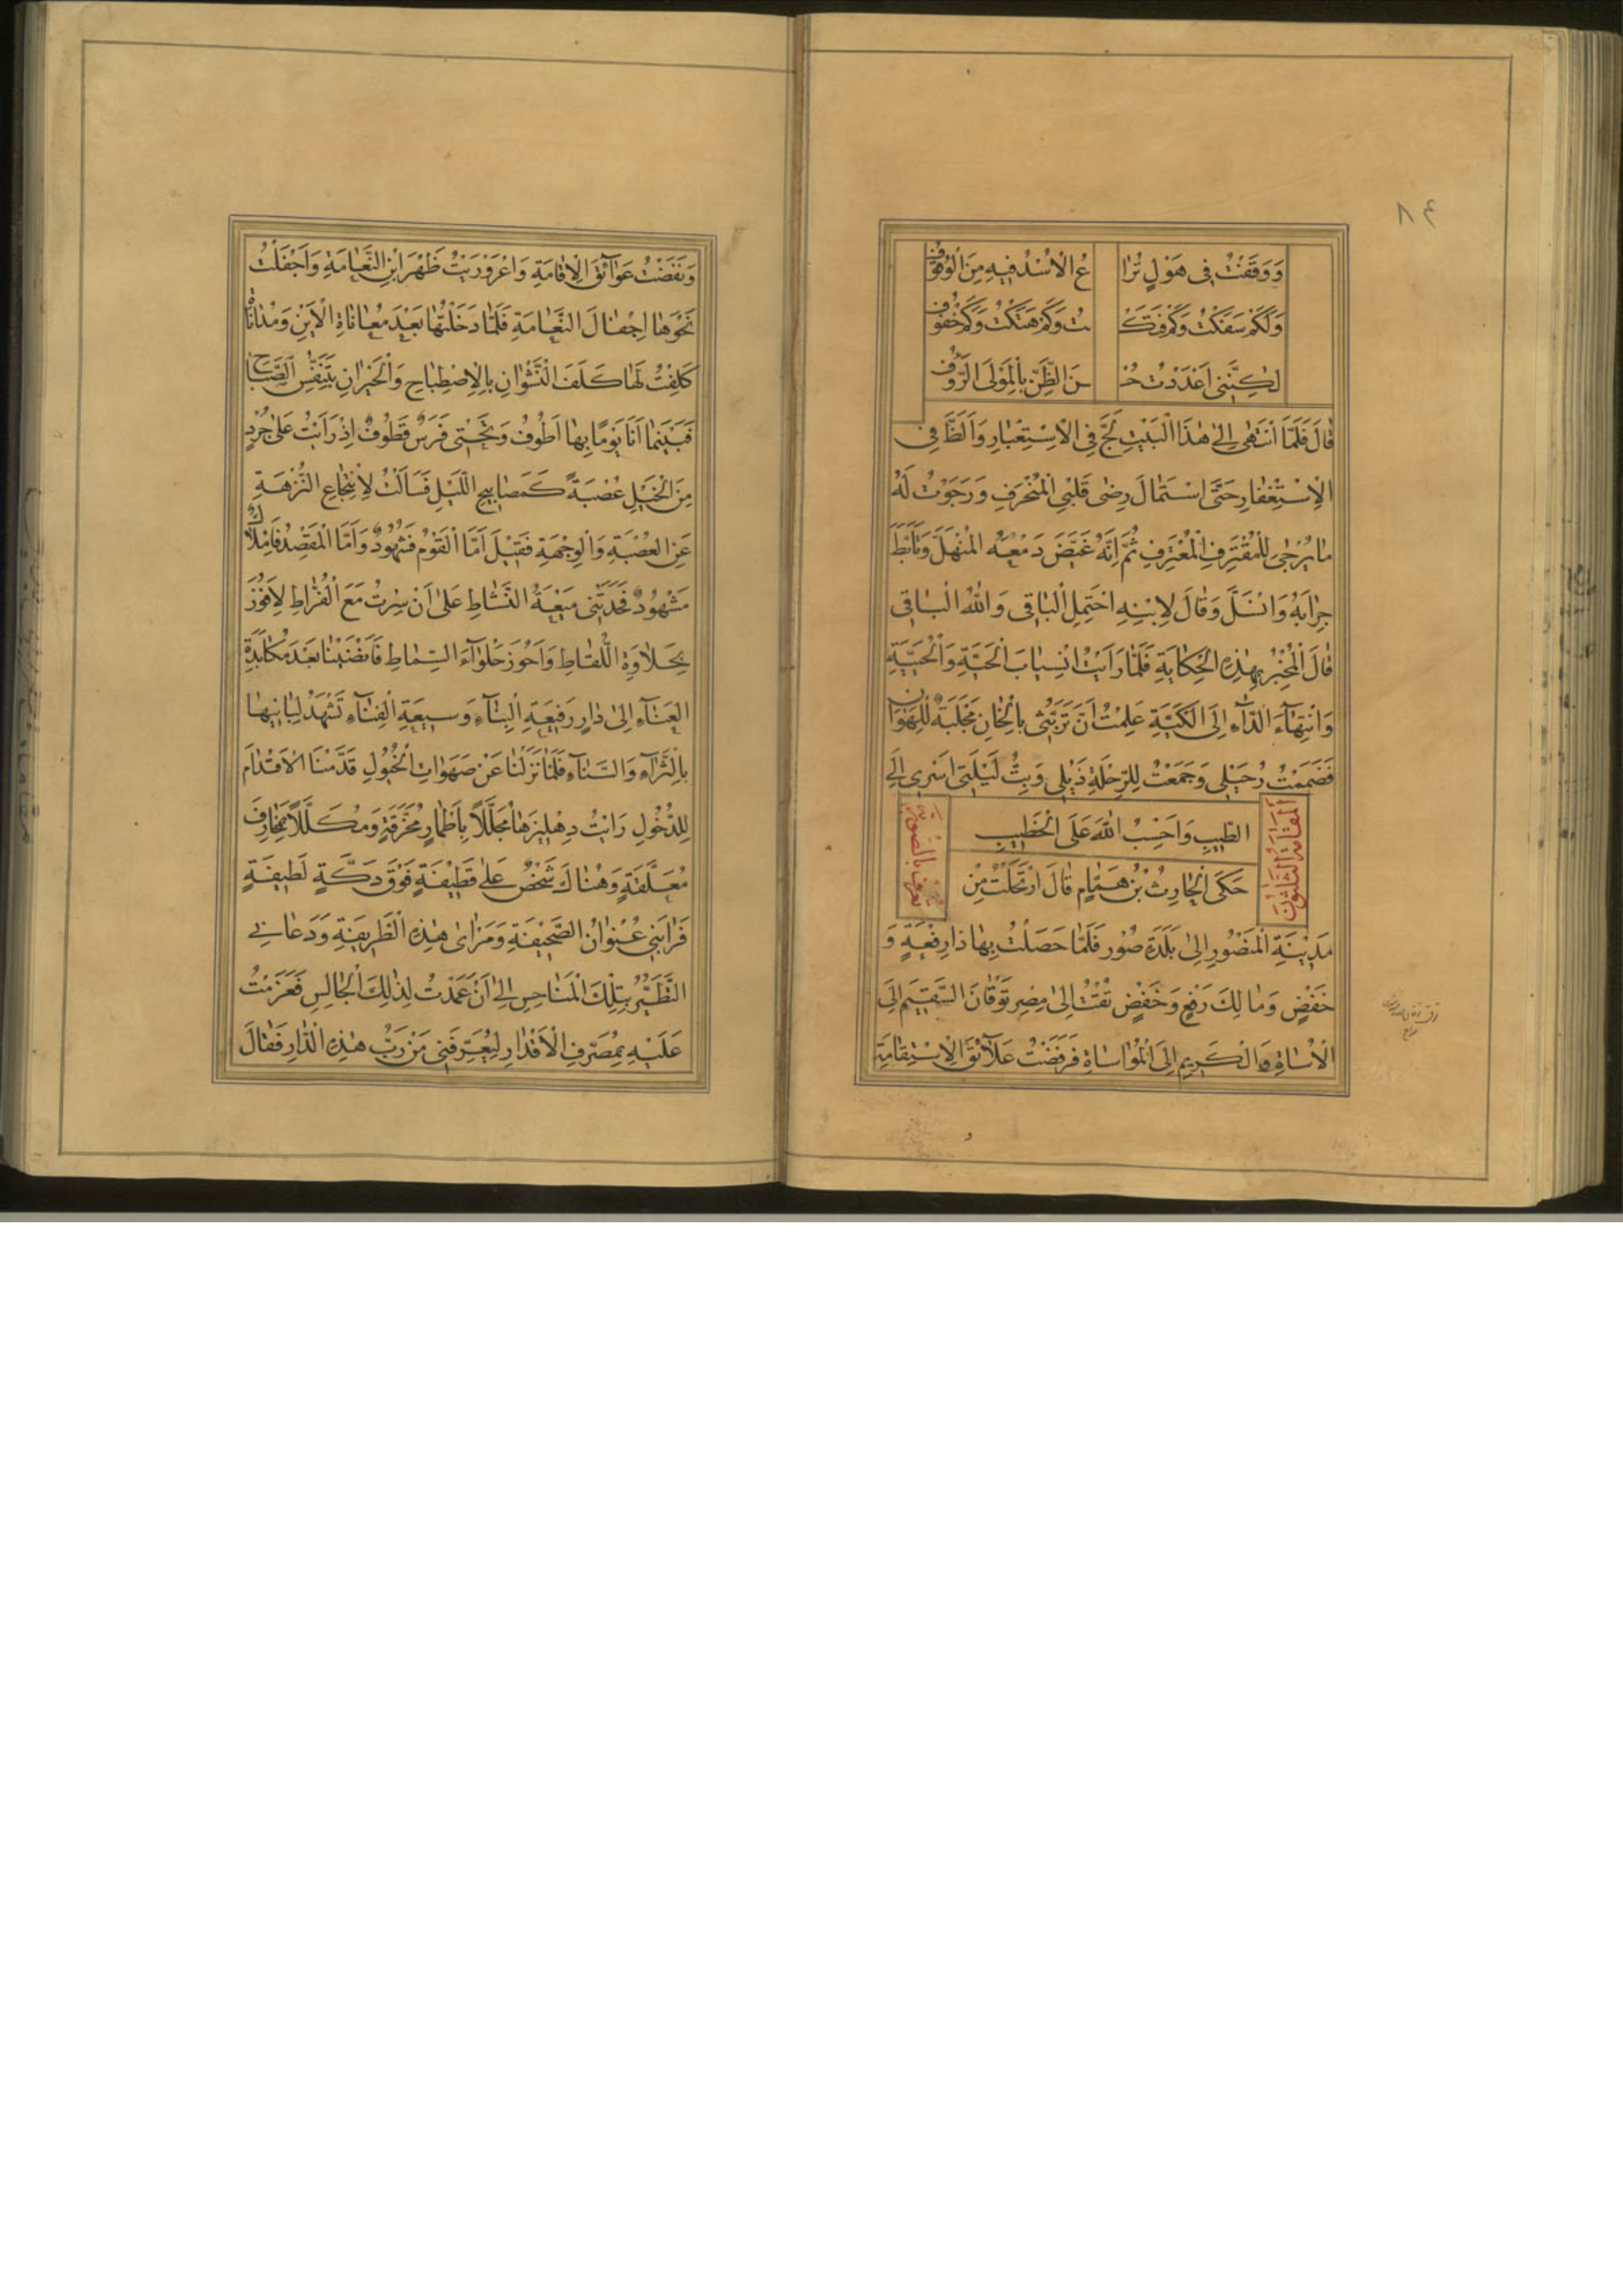 ٨٤
وَوَقَفْتُ فِى هَوْلٍ تُرَا عُ الْاُسْدُ فِيهِ مِنَ الْوُقُوفِ
وَلَكَمْ سَفَكْتُ وَكَمْ فَتَكْـ ـتُ وَكَمْ هَتَكْتُ وَكَمْ خُفُوفِ
لٰكِنَّنِى اَعْدَدْتُ حُسْـ ـنَ الظَّنِّ بِالْمَوْلَى الرَّؤُفِ
قَالَ فَلَمَّا انْتَهٰى اِلٰى هٰذَا الْبَيْتِ لَجَّ فِى الْاِسْتِعْبَارِ وَاَلَظَّ فِى
الْاِسْتِغْفَارِ حَتَّى اسْتَمَالَ رِضٰى قَلْبِى الْمُنْحَرِفِ وَرَجَوْتُ لَهُ
مَا يُرْجٰى لِلْمُقْتَرِفِ الْمُعْتَرِفِ ثُمَّ اِنَّهُ غَيَّضَ دَمْعَهُ الْمُنْهَلَّ وَتَاَبَّطَ
جِرَابَهُ وَانْسَلَّ وَقَالَ لِابْنِهِ احْتَمِلِ الْبَاقِى وَاللّٰهُ الْبَاقِى
قَالَ الْمُخْبِرُ بِهٰذِهِ الْحِكَايَةِ فَلَمَّا رَاَيْتُ انْسِيَابَ الْحَيَّةِ وَالْحُيَيَّةِ
وَانْتِهَآءَ الدَّآءِ اِلَى الْكَيَّةِ عَلِمْتُ اَنَّ تَرَبُّثِى بِالْخَانِ مَجْلَبَةٌ لِلْهَوَانِ
فَضَمَمْتُ رُحَيْلِى وَجَمَعْتُ لِلرِّحْلَةِ ذَيْلِى وَبِتُّ لَيْلَتِى اَسْرِى اِلَى
الطِّيبِ وَاَحْتَسِبُ اللّٰهَ عَلَى الْخَطِيبِ
اَلْمَقَامَةُ الثَّلٰثُونَ
تُعْرَفُ بِالصُّورِيَّةِ
حَكَى الْحَارِثُ بْنُ هَمَّامٍ قَالَ ارْتَحَلْتُ مِنْ
مَدِينَةِ الْمَنْصُورِ اِلٰى بَلْدَةِ صُورٍ فَلَمَّا حَصَلْتُ بِهَا ذَا رِفْعَةٍ وَ
خَفْضٍ وَمَالِكَ رَفْعٍ وَخَفْضٍ تُقْتُ اِلٰى مِصْرَ تَوَقَانَ السَّقِيمِ اِلَى
الْاُسَاةِ وَالْكَرِيمِ اِلَى الْمُوَاسَاةِ فَرَفَضْتُ عَلَآئِقَ الْاِسْتِقَامَةِ
وَنَفَضْتُ عَوَآئِقَ الْاِقَامَةِ وَاعْرَوْرَيْتُ ظَهْرَ ابْنِ النَّعَامَةِ وَاَجْفَلْتُ
نَحْوَهَا اِجْفَالَ النَّعَامَةِ فَلَمَّا دَخَلْتُهَا بَعْدَ مُعَانَاةِ الْاَيْنِ وَمُدَانَاةِ
كَلِفْتُ لَهَا كَلَفَ النَّشْوَانِ بِالْاِصْطِبَاحِ وَالْحَيْرَانِ بِتَنَفُّسِ الصَّبَاحِ
فَبَيْنَمَا اَنَا يَوْمًا بِهَا اَطُوفُ وَتَحْتِى فَرَسٌ قَطُوفٌ اِذْ رَاَيْتُ عَلٰى جُرْدٍ
مِنَ الْخَيْلِ عُصْبَةً كَمَصَابِيحِ اللَّيْلِ فَسَاَلْتُ لِانْتِجَاعِ النُّزْهَةِ
عَنِ الْعُصْبَةِ وَالْوِجْهَةِ فَقِيلَ اَمَّا الْقَوْمُ فَشُهُودٌ وَاَمَّا الْمَقْصِدُ فَاِمْلَاكٌ
مَشْهُودٌ فَحَدَتْنِى مَيْعَةُ النَّشَاطِ عَلٰى اَنْ سِرْتُ مَعَ الْفُرَّاطِ لِاَفُوزَ
بِحَلَاوَةِ اللُّقَاطِ وَاَحُوزَ حَلْوَآءَ السِّمَاطِ فَاَفْضَيْنَا بَعْدَ مُكَابَدَةِ
الْعَنَآءِ اِلٰى دَارٍ رَفِيعَةِ الْبِنَآءِ وَسِيعَةِ الْفِنَآءِ تَشْهَدُ لِبَانِيهَا
بِالثَّرَآءِ وَالسَّنَآءِ فَلَمَّا نَزَلْنَا عَنْ صَهَوَاتِ الْخُيُولِ قَدَّمْنَا الْاَقْدَامَ
لِلدُّخُولِ رَاَيْتُ دِهْلِيزَهَا مُجَلَّلًا بِاَطْمَارٍ مُخَرَّقَةٍ وَمُكَلَّلًا بِمَخَارِفَ
مُعَلَّقَةٍ وَهُنَاكَ شَخْصٌ عَلٰى قَطِيفَةٍ فَوْقَ دَكَّةٍ لَطِيفَةٍ
فَرَابَنِى عُنْوَانُ الصَّحِيفَةِ وَمَرْاٰى هٰذِهِ الطَّرِيفَةِ وَدَعَانِى
التَّطَيُّرُ بِتِلْكَ الْمَنَاحِسِ اِلٰى اَنْ عَمَدْتُ لِذٰلِكَ الْجَالِسِ فَعَزَمْتُ
عَلَيْهِ بِمُصَرِّفِ الْاَقْدَارِ لِيُعَرِّفَنِى مَنْ رَبُّ هٰذِهِ الدَّارِ فَقَالَ